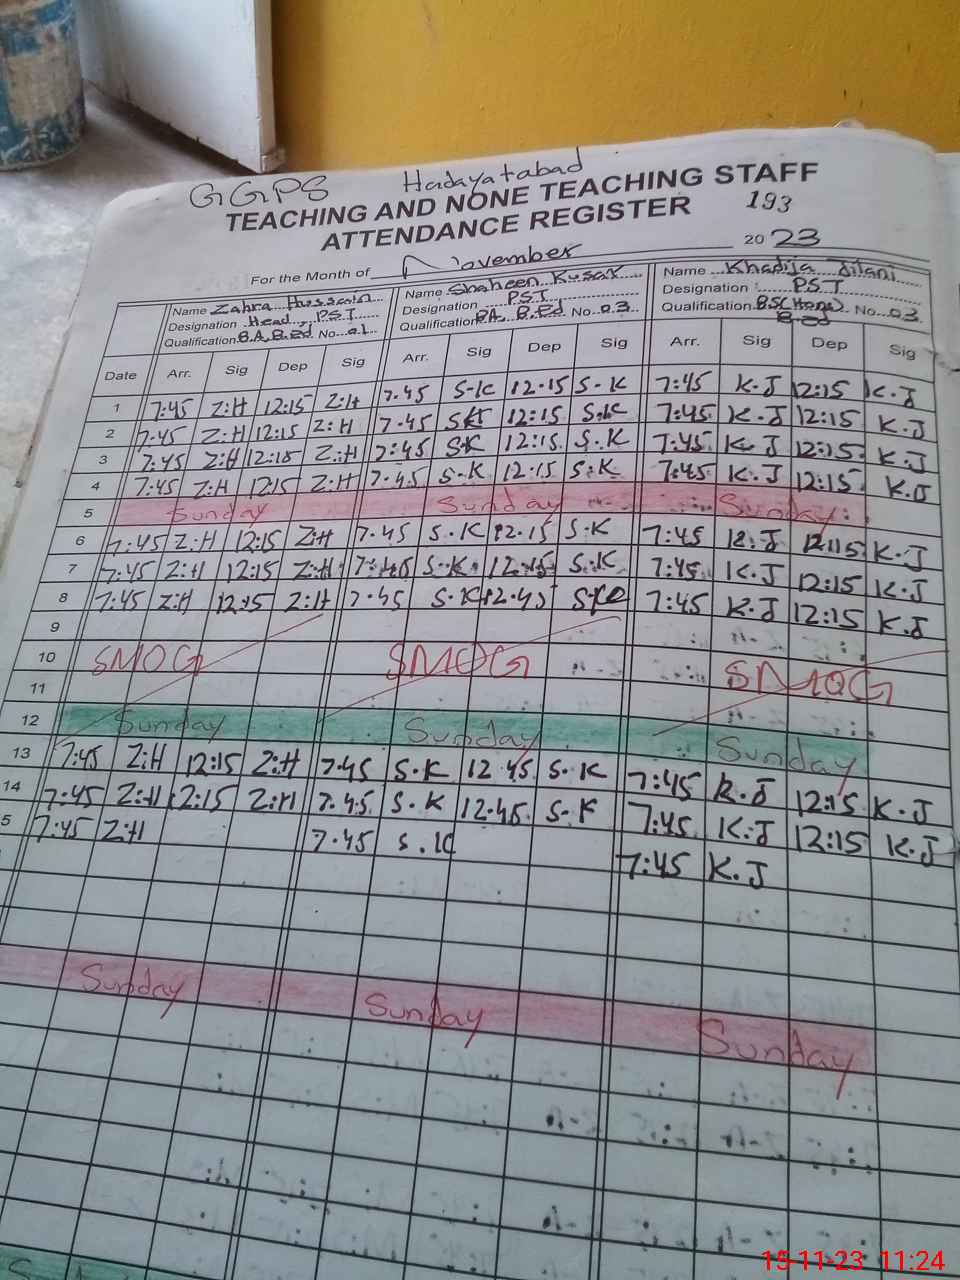 GGPS Hadayatabad
TEACHING AND NONE TEACHING STAFF
ATTENDANCE REGISTER 193
For the Month of November 2023
Name Zahra Hussain Name Shaheen Kusar Name Khadija Jilani
Designation Head, PST Designation PST Designation PST
Qualification B.A, B.Ed No 01 Qualification BA, B.Ed No 03 Qualification BSC Hons No 03
B.Ed
Date Arr. Sig Dep Sig Arr. Sig Dep Sig Arr. Sig Dep Sig
1 7:45 Z:H 12:15 Z:H 7.45 S-K 12.15 S-K 7:45 K.J 12:15 K.J
2 7:45 Z:H 12:15 Z:H 7.45 SK 12:15 S.K 7:45 K.J 12:15 K.J
3 7:45 Z:H 12:15 Z:H 7:45 S.K 12:15 S.K 7:45 K.J 12:15 K.J
4 7:45 Z:H 12:15 Z:H 7.45 S-K 12:15 S:K 7:45 K.J 12:15 K.J
5 Sunday Sunday Sunday
6 7:45 Z:H 12:15 Z:H 7.45 S.K 12.15 S.K 7:45 K.J 12:15 K.J
7 7:45 Z:H 12:15 Z:H S.K 12:15 S.K 7:45 K.J 12:15 K.J
8 7:45 Z:H 12:15 Z:H 7.45 S.K 12.45 7:45 K.J 12:15 K.J
9
10 SMOG SMOG SMOG
11
12 Sunday Sunday Sunday
13 7:45 Z:H 12:15 Z:H 7.45 S.K 12 45 S.K 7:45 K.J 12:15 K.J
14 7:45 Z:H 12:15 Z:H 7.45 S.K 12.45 S.K 7:45 K.J 12:15 K.J
5 7:45 Z:H 7.45 S.K 7:45 K.J
Sunday Sunday Sunday
15-11-23 11:24